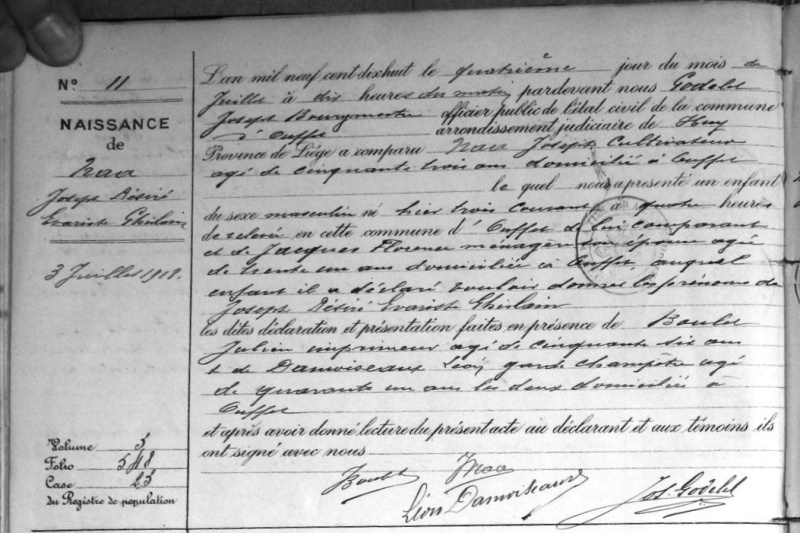 N° 11
NAISSANCE
de
Joseph Désiré
Evariste Ghislain
3 Juillet 1918.
Volume 5
Folio 548
Case 25
du Registre de population
L'an mil neuf cent dixhuit le quatrième jour du mois de
Juillet à dix heures du matin pardevant nous Godelet
Joseph Bourgmestre officier public de l'état civil de la commune
d'Ouffet arrondissement judiciaire de Huy
Province de Liége a comparu Joseph Cultivateur
agé de cinquante trois ans domicilié à Ouffet
le quel nous a présenté un enfant
du sexe masculin né hier trois courant à quatre heures
de relevée en cette commune d'Ouffet de lui comparant
et de Jacques Florence ménagère son épouse agée
de trente un ans domiciliée à Ouffet, auquel
enfant il a déclaré vouloir donner les prénoms de
Joseph Désiré Evariste Ghislain
les dites déclaration et présentation faites en présence de Boulet
Julien imprimeur agé de cinquante six ans
et de Damoiseaux Léon garde champêtre agé
de quarante un ans les deux domiciliés à
Ouffet
et après avoir donné lecture du présent acte au déclarant et aux témoins ils
ont signé avec nous
Boulet
Léon Damoiseaux
Jos. Godelet